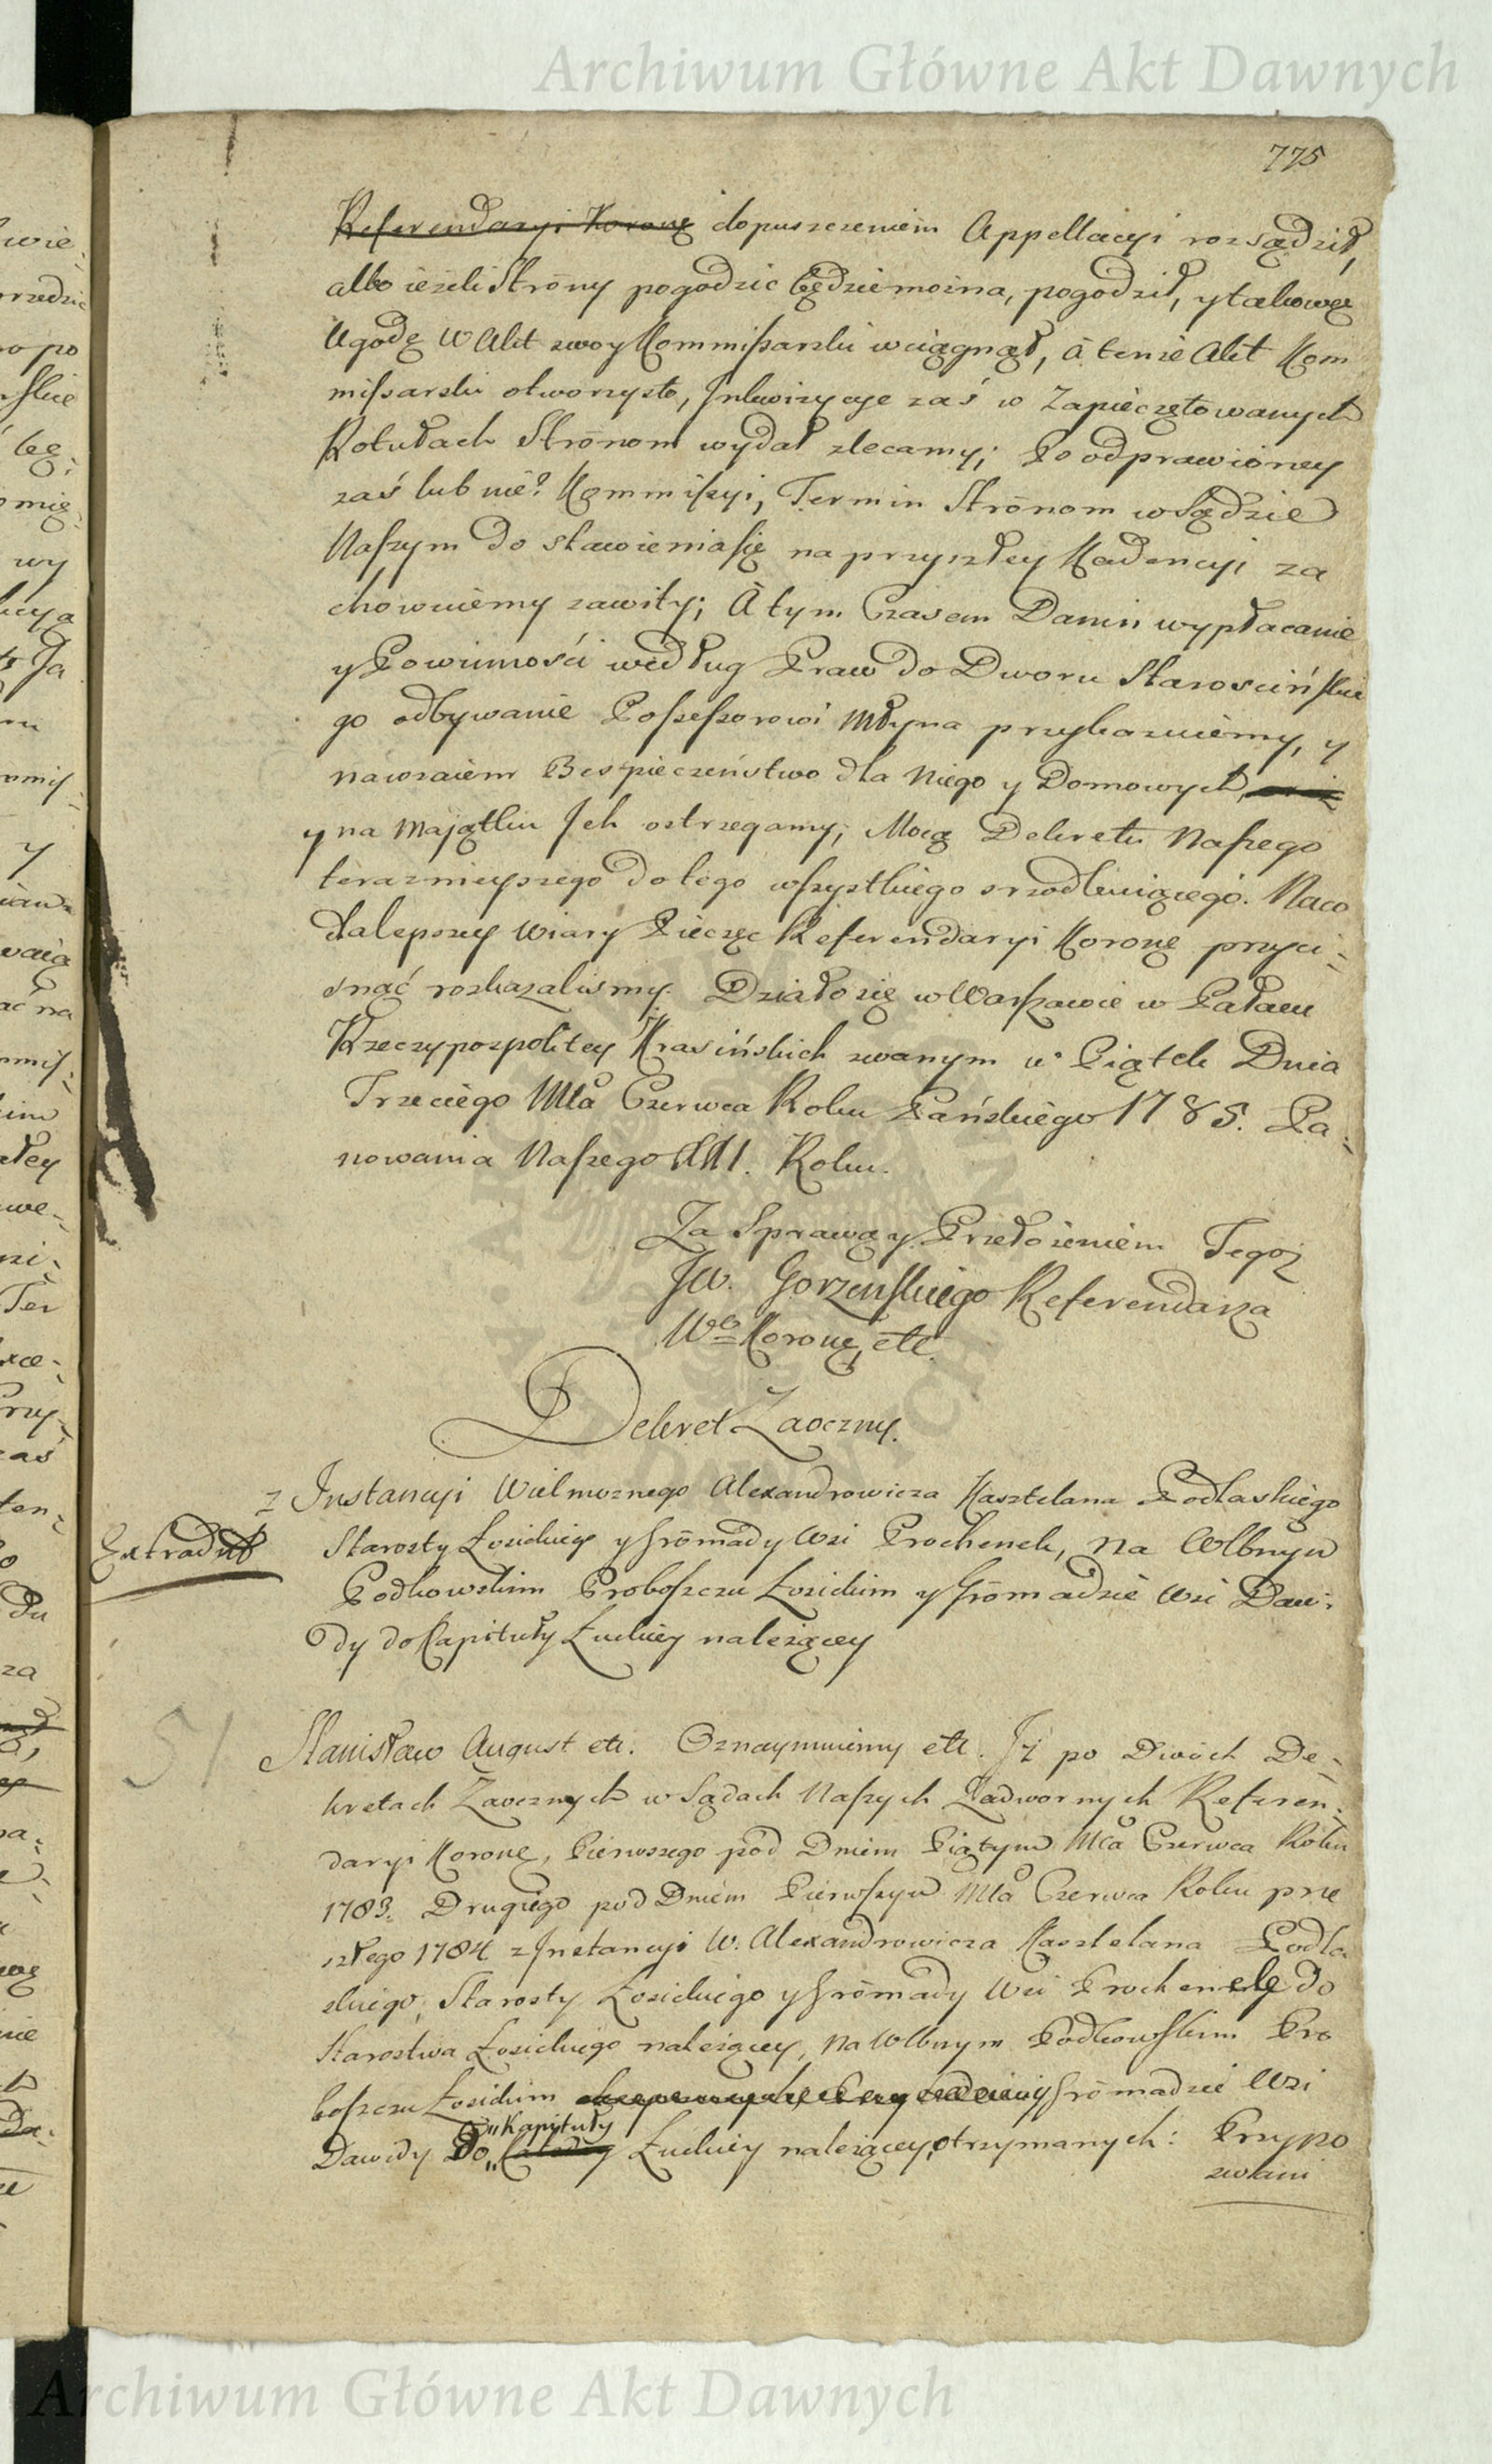 Archiwum Główne Akt Dawnych
775
Referendaryi Koronę dopuszczeniem Appellacyi rozsądził,
albo ieżeli Strony pogodzic będzie można, pogodził, y takową
Ugodę w Akt swoy Kommißarski wciągnął, à tenże Akt Kom
mißarski otworzysto, Inkwizycye zaś w Zapieczętowanych
Rotułach Stronom wydał zlecamy; Po odprawioney
zaś lub nie? Kommißyi, Termin Stronom w Sądzie
Naszym do stawienia się na przyszłey Kadencyi za
chowuiemy zawity; A tym Czasem Danin wypłacanie
y Powinności według Praw do Dworu Starościńskie
go odbywanie Possessorowi Młyna przykazuiemy, y
nawzaiem Bespieczeństwo dla Niego y Domowych,
y na Maiątku Jch ostrzegamy; Mocą Dekretu Naszego
teraznieyszego do tego wszystkiego srzodkuiącego. Na co
dla lepszey Wiary Pieczęc Referendaryi Koronę przyci-
snąć rozkazalismy. Działo się w Warszawie w Pałacu
Rzeczypospolitey Krasińskich zwanym w Piątek Dnia
Trzeciego Mca Czerwca Roku Pańskiego 1785. Pa-
nowania Naszego XXI. Roku.
Za Sprawą y Przełożeniem Tegoż
JW. Gorzenskiego Referendarza
Wo Koronę, etc.
Dekret Zaoczny.
Z Instancyi Wielmoznego Alexandrowicza Kasztelana Podlaskiego
Starosty Łosickiey y Gromady Wsi Prochenek, Na Wlbnym
Extradut
Podkowskim Proboszczu Łosickim y Gromadzie Wsi Dawi-
dy do Kapituły Łuckiey należącey
51
Stanisław August etc. Oznaymuiemy etc. Jż po Dwóch De-
kretach Zaocznych w Sądach Naszych Zadwornych Referen-
daryi Koronę, Pierwszego pod Dniem Piątym Mca Czerwca Roku
1783. Drugiego pod Dniem Pierwszym Mca Czerwca Roku prze
szłego 1784 z Jnstancyi W. Alexandrowicza Kasztelana Podla
skiego, Starosty Łosickiego y Gromady Wsi Prochenek do
Starostwa Łosickiego należącey, na Wlbnym Podkowskim Pro
boszczu Łosickim y Gromadzie Wsi
Kapituły
Dawidy Do Łuckiey należącey, otrzymanych: Przypo
zwani
Archiwum Główne Akt Dawnych